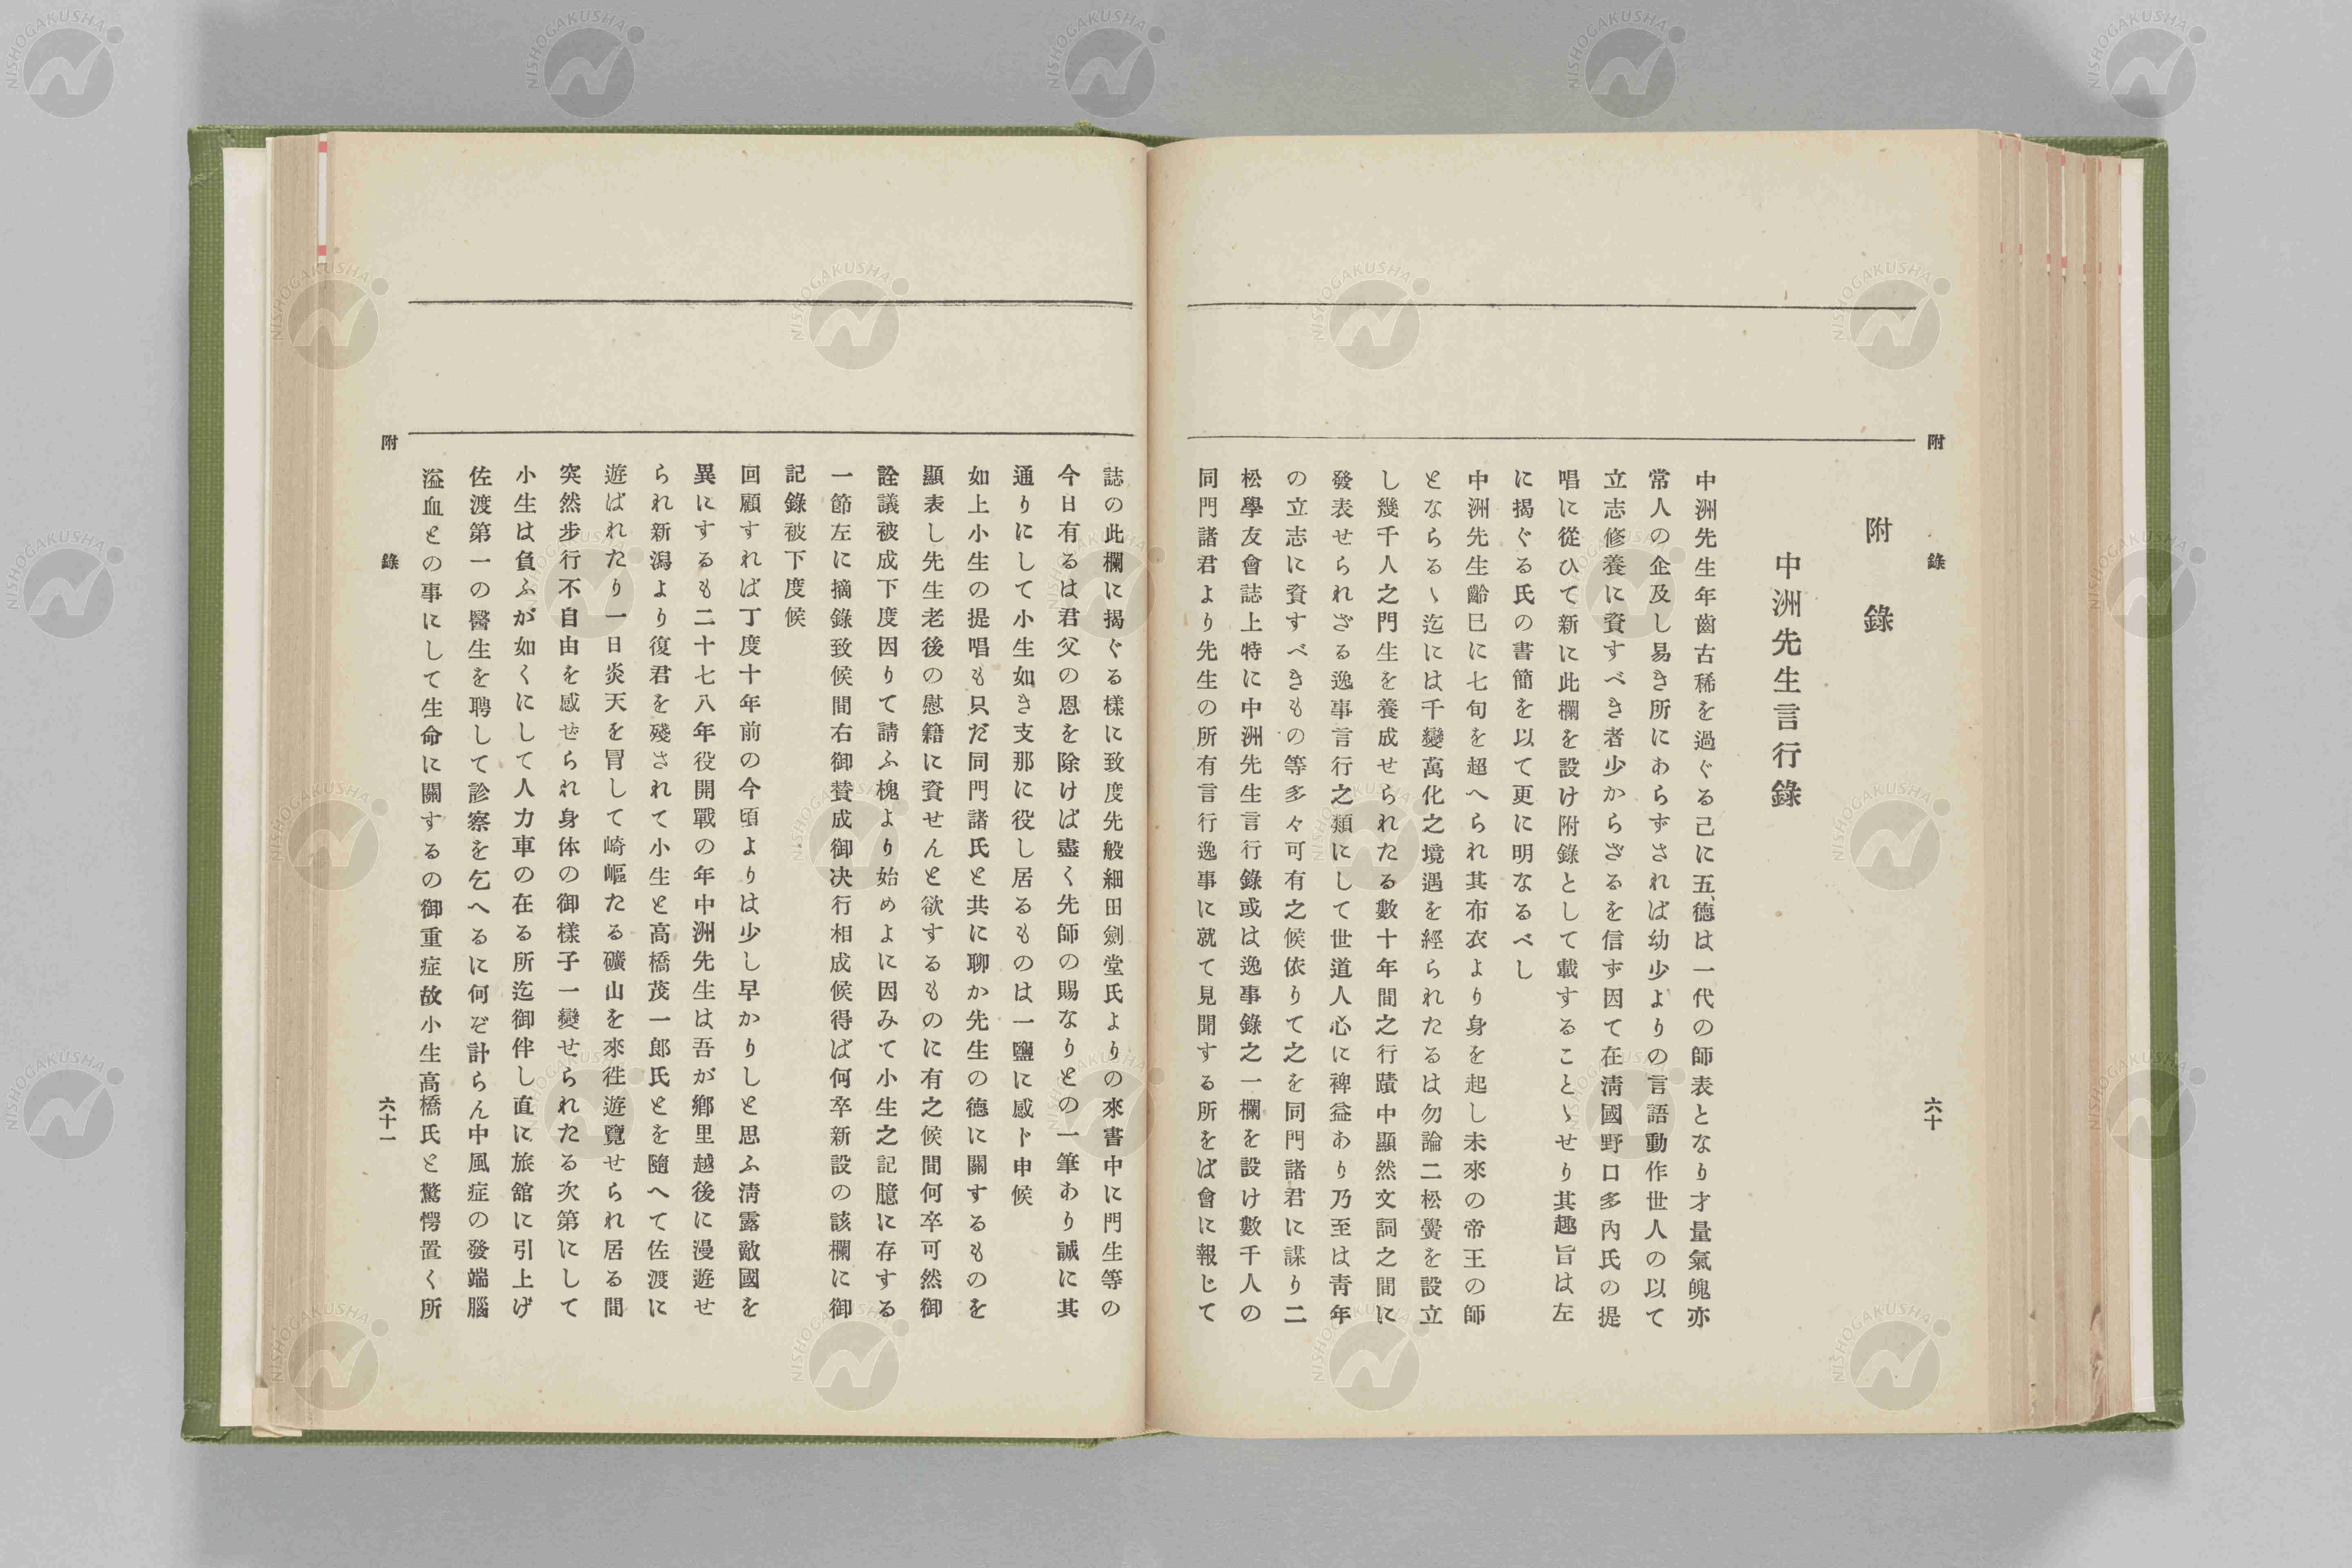 附錄
六十
附錄
中洲先生言行錄
中洲先生年齒古稀を過ぐる己に五、德は一代の師表となり才量氣魄亦
常人の企及し易き所にあらずされば幼少よりの言語動作世人の以て
立志修養に資すべき者少からざるを信ず因て在淸國野口多內氏の提
唱に從ひて新に此欄を設け附錄として載することゝせり其趣旨は左
に揭ぐる氏の書簡を以て更に明なるべし
中洲先生齡巳に七旬を超へられ其布衣より身を起し未來の帝王の師
とならるゝ迄には千變萬化之境遇を經られたるは勿論二松黌を設立
し幾千人之門生を養成せられたる數十年間之行蹟中顯然文詞之間に
發表せられざる逸事言行之類にして世道人心に裨益あり乃至は靑年
の立志に資すべきもの等多々可有之候依りて之を同門諸君に謀り二
松學友會誌上特に中洲先生言行錄或は逸事錄之一欄を設け數千人の
同門諸君より先生の所有言行逸事に就て見聞する所をば會に報じて
誌の此欄に揭ぐる樣に致度先般細田劍堂氏よりの來書中に門生等の
今日有るは君父の恩を除けば盡く先師の賜なりとの一筆あり誠に其
通りにして小生如き支那に役し居るものは一鹽に感ト申候
如上小生の提唱も只だ同門諸氏と共に聊か先生の德に關するものを
顯表し先生老後の慰籍に資せんと欲するものに有之候間何卒可然御
詮議被成下度因りて請ふ槐より始めよに因みて小生之記臆に存する
一節左に摘錄致候間右御賛成御决行相成候得ば何卒新設の該欄に御
記錄被下度候
回顧すれば丁度十年前の今頃よりは少し早かりしと思ふ淸露敵國を
異にするも二十七八年役開戰の年中洲先生は吾が鄕里越後に漫遊せ
られ新潟より復君を殘されて小生と高橋茂一郎氏とを隨へて佐渡に
遊ばれたり一日炎天を冒して崎嶇たる礦山を來徃遊覽せられ居る間
突然步行不自由を感せられ身体の御樣子一變せられたる次第にして
小生は負ふが如くにして人力車の在る所迄御伴し直に旅舘に引上げ
佐渡第一の醫生を聘して診察を乞へるに何ぞ計らん中風症の發端腦
溢血との事にして生命に關するの御重症故小生高橋氏と驚愕置く所
附錄
六十一